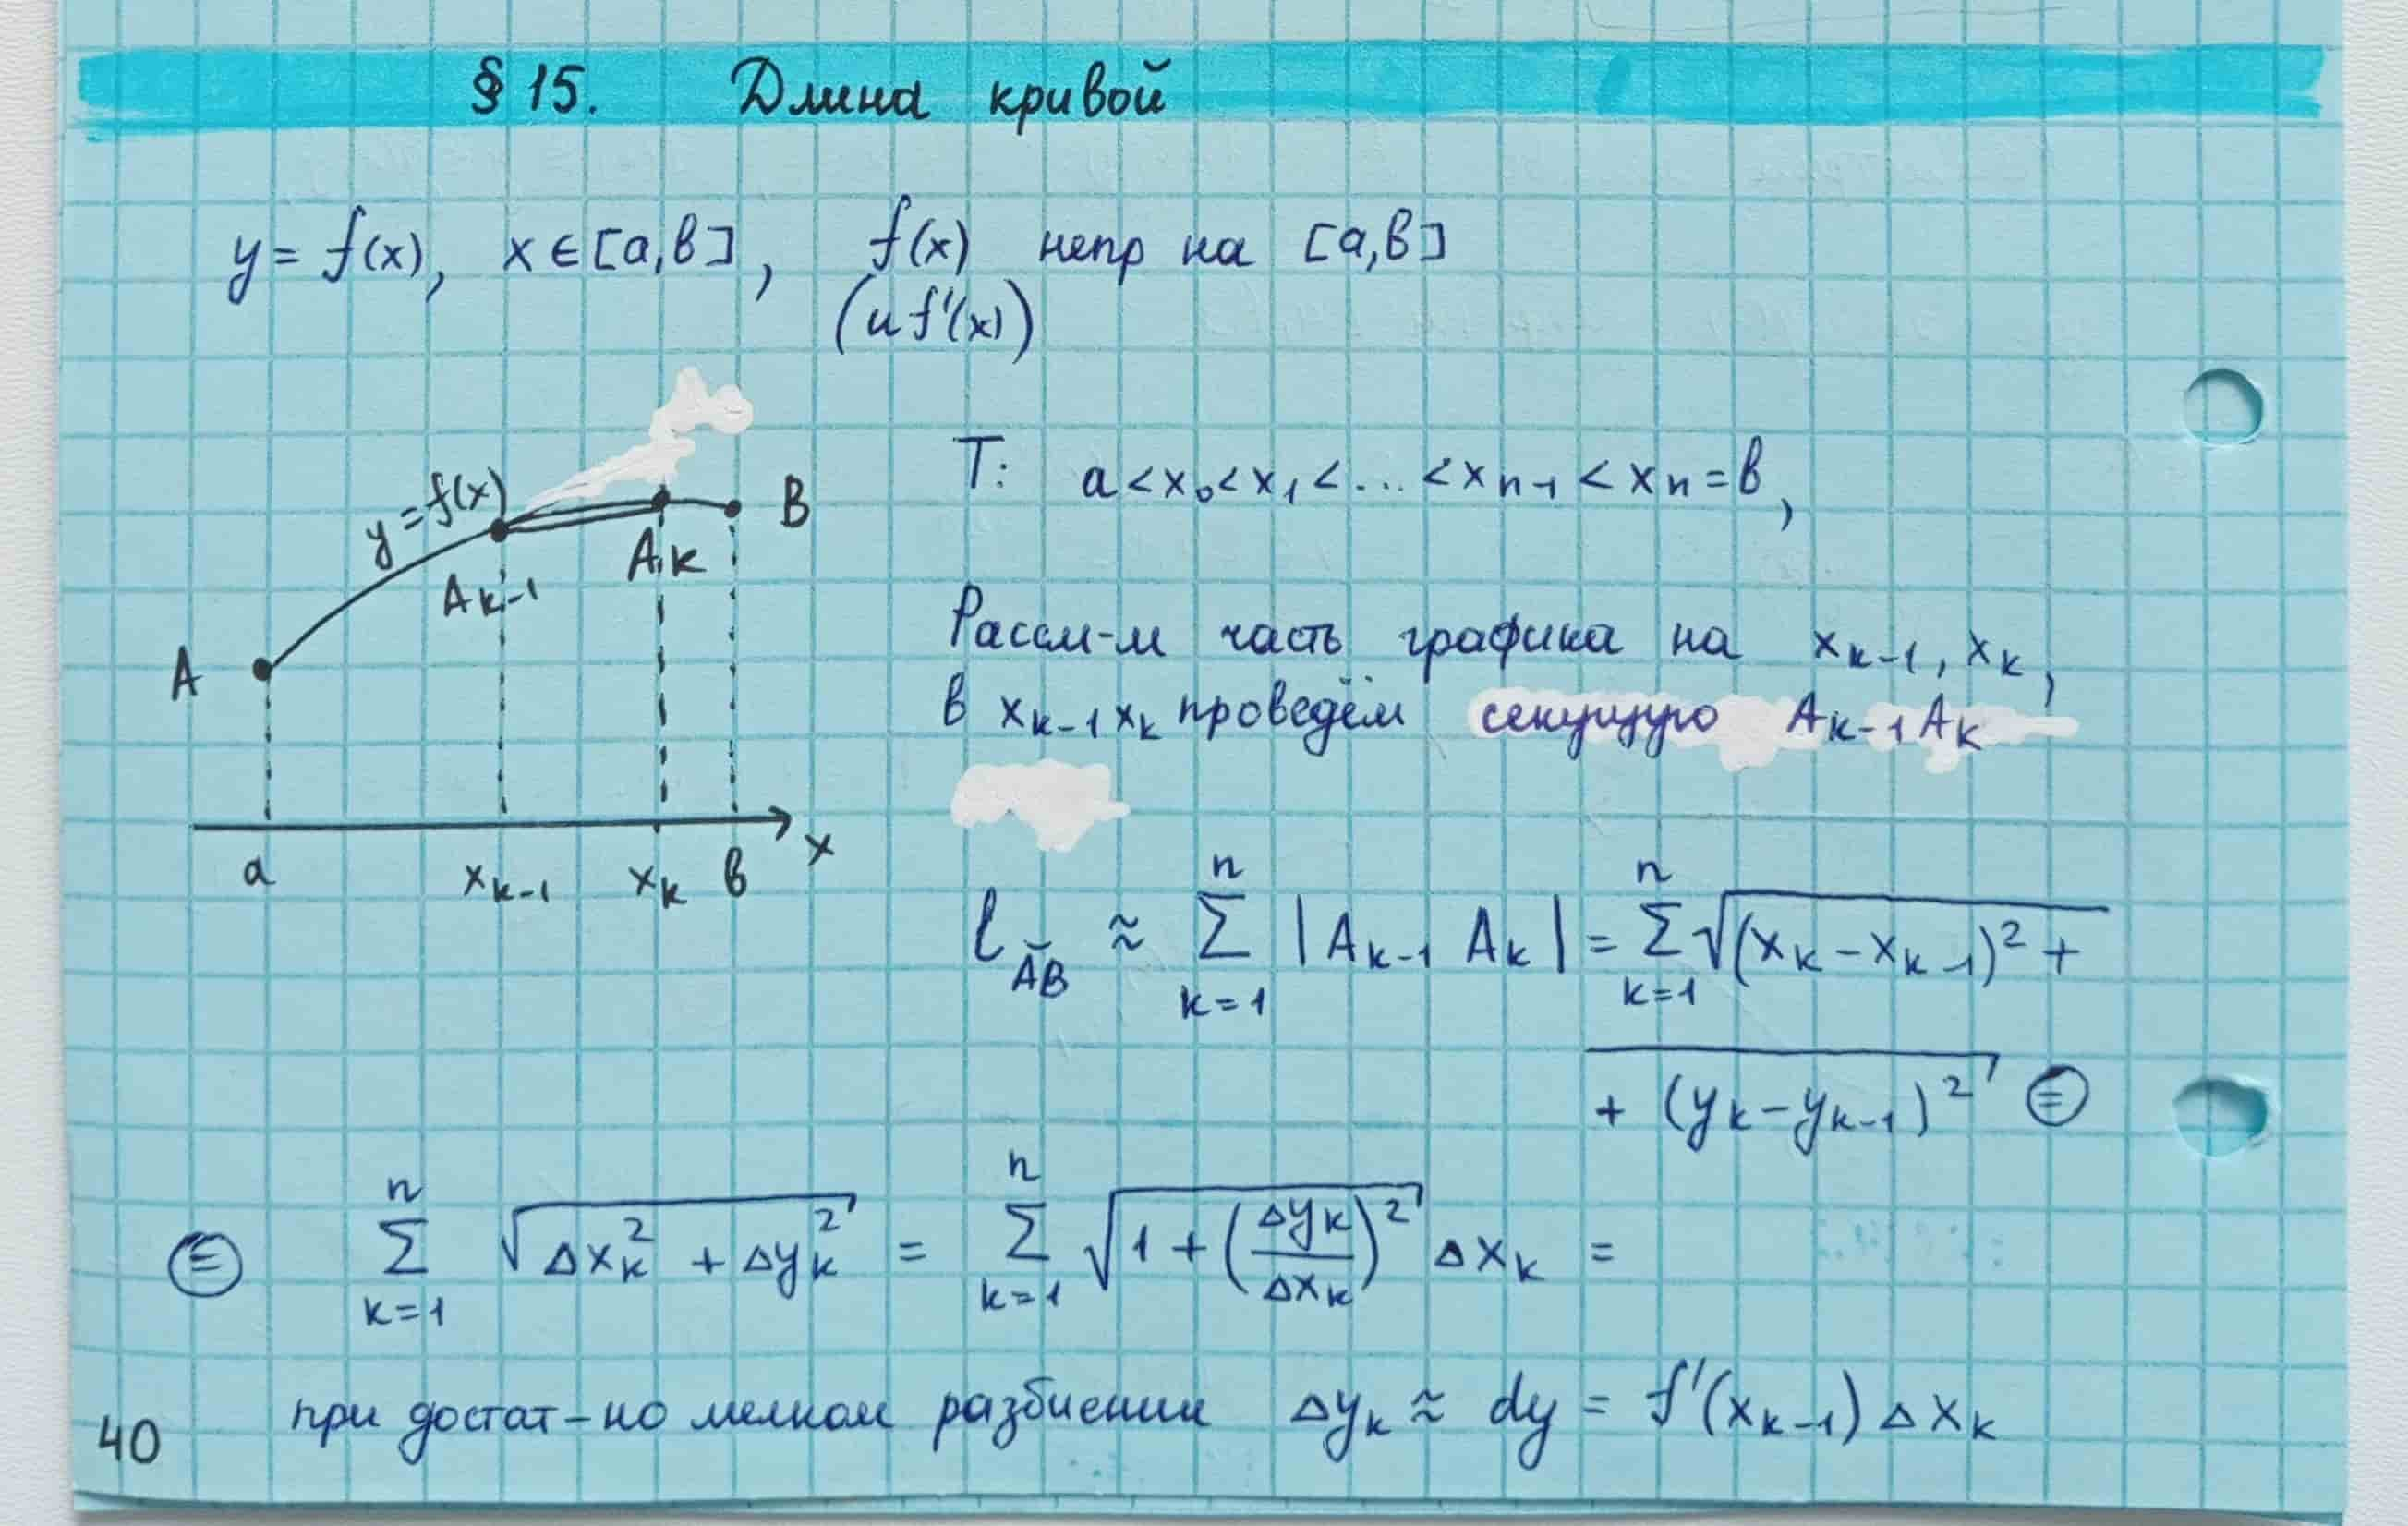 § 15. Длина кривой
y = f(x), x ∈ [a, b], f(x) непр на [a, b]
(и f'(x))
y = f(x)
A
A_{k-1}
A_k
B
a
x_{k-1}
x_k
b
x
T: a < x_0 < x_1 < ... < x_{n-1} < x_n = b,
Рассм-м часть графика на x_{k-1}, x_k,
в x_{k-1} x_k проведём секущую A_{k-1} A_k
l_{A͝B} ≈ \sum_{k=1}^{n} |A_{k-1} A_k| = \sum_{k=1}^{n} √((x_k - x_{k-1})² +
+ (y_k - y_{k-1})²) ⊜
⊜ \sum_{k=1}^{n} √(Δx_k² + Δy_k²) = \sum_{k=1}^{n} √(1 + (Δy_k / Δx_k)²) Δx_k =
при достат-но мелком разбиении Δy_k ≈ dy = f'(x_{k-1}) Δx_k
40